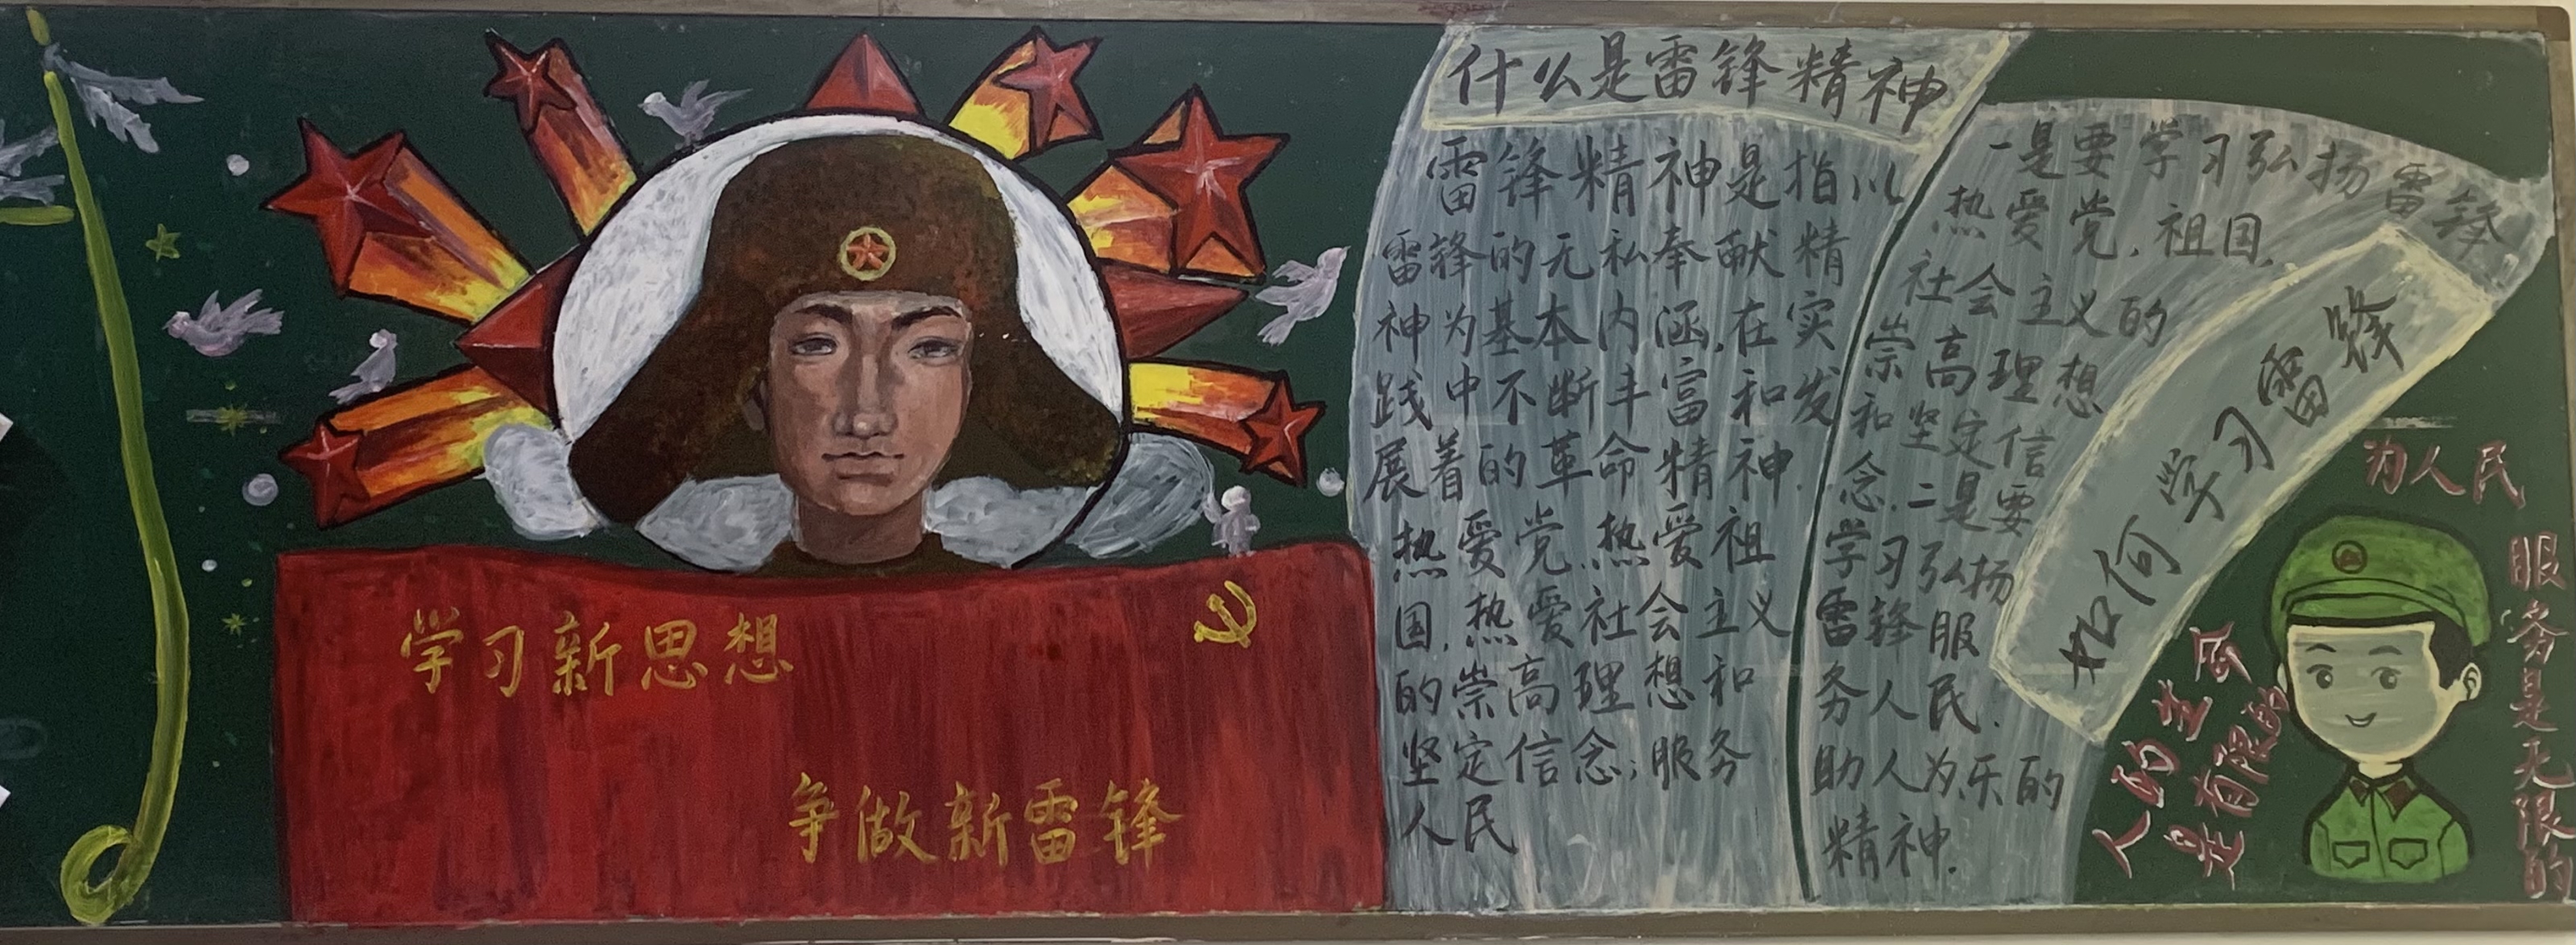 学习新思想
争做新雷锋
什么是雷锋精神
雷锋精神是指以
雷锋的无私奉献精
神为基本内涵,在实
践中不断丰富和发
展着的革命精神.
热爱党.热爱祖
国,热爱社会主义
的崇高理想和
坚定信念;服务
人民
如何学习雷锋
一是要学习弘扬雷锋
热爱党,祖国,
社会主义的
崇高理想
和坚定信
念.二是要
学习弘扬
雷锋服
务人民.
助人为乐的
精神.
人的生命
是有限的
为人民
服务是无限的